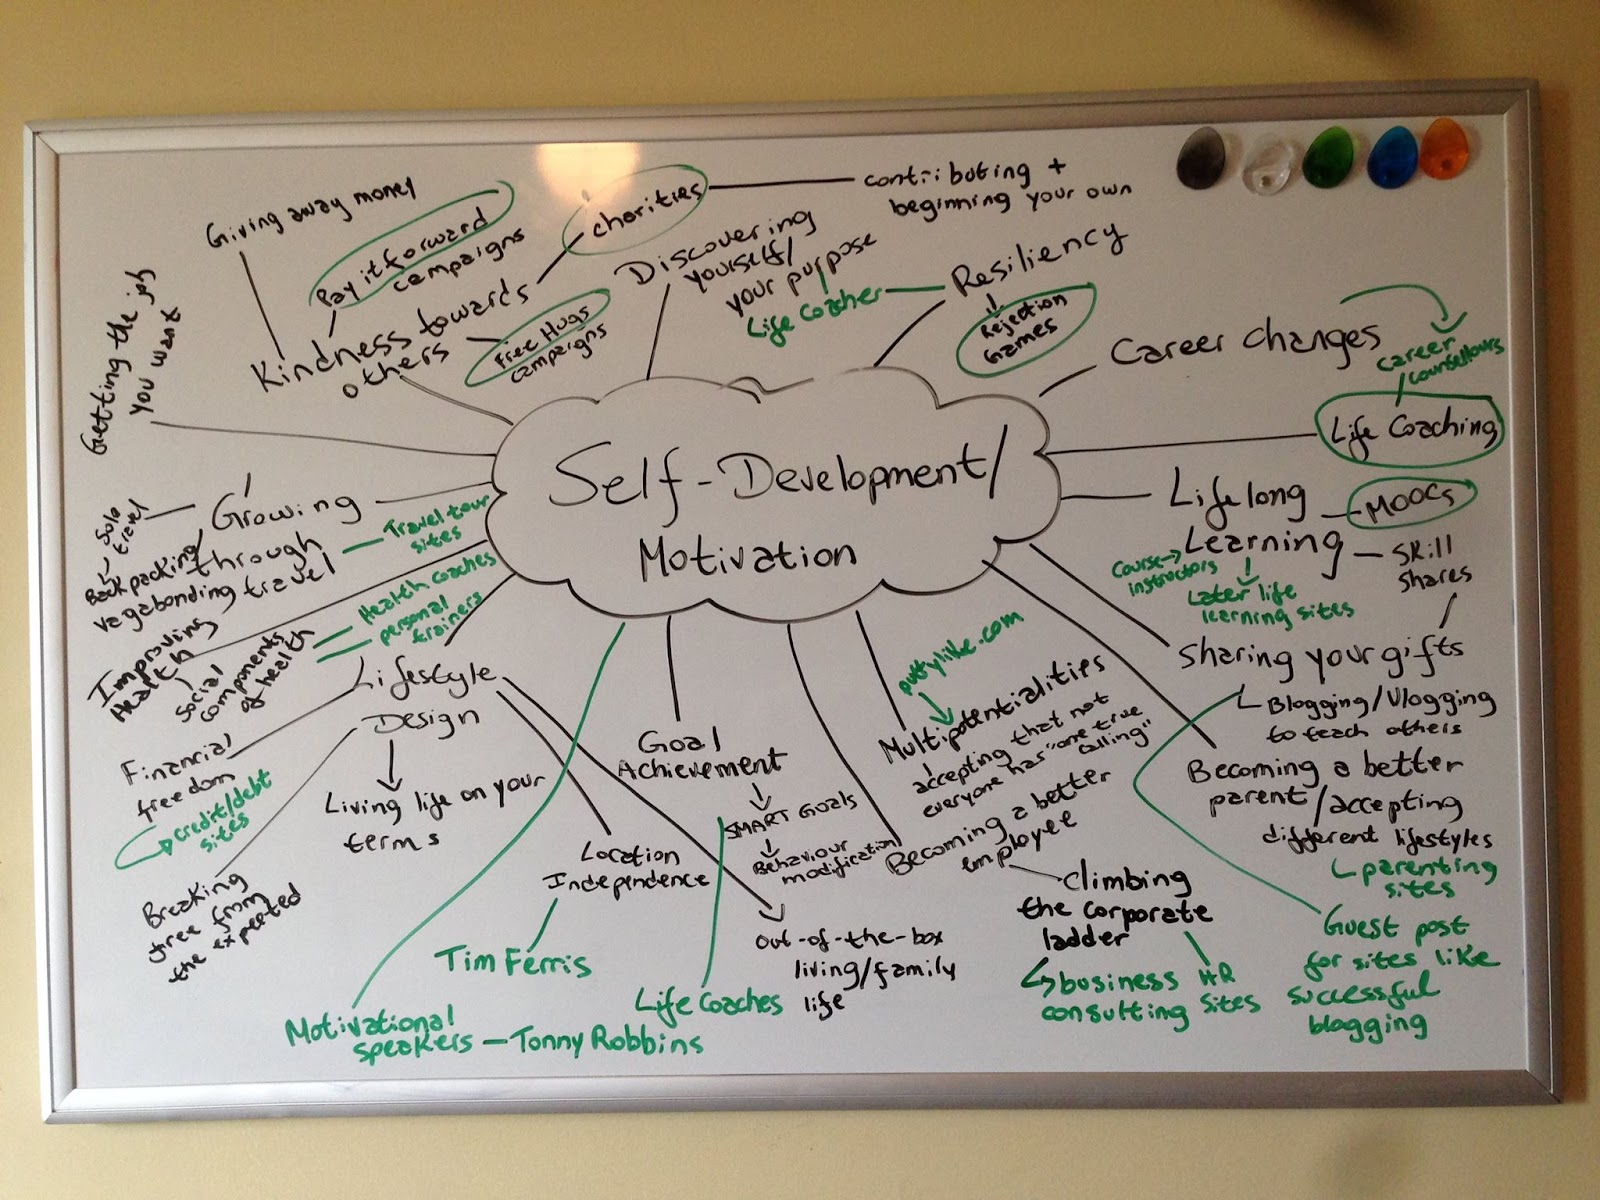 Self-Development/
Motivation
Giving away money
Pay it forward
campaigns
charities
contributing +
beginning your own
Kindness towards
others
Free Hugs
campaigns
Discovering
yourself/
your purpose
Life Coacher
Resiliency
Rejection
Games
Career changes
career
counsellours
Life Coaching
Lifelong
Learning
MOOCs
Skill
shares
Course
instructors
Later life
learning sites
Sharing your gifts
Blogging/Vlogging
to teach others
Guest post
for sites like
successful
blogging
Becoming a better
parent/accepting
different lifestyles
parenting
sites
Multipotentialities
puttylike.com
accepting that not
everyone has "one true
calling"
Becoming a better
employee
climbing
the corporate
ladder
business
consulting
HR
sites
Goal
Achievement
SMART GOALS
Behaviour
modification
Life Coaches
Motivational
speakers – Tonny Robbins
Lifestyle
Design
Living life on your
terms
Location
Independence
Tim Ferris
Out-of-the-box
living/family
life
Financial
freedom
credit/debt
sites
Breaking
free from
the expected
Improving
Health
Social
components
of health
Health coaches
personal
trainers
Growing
through
travel
Travel tour
sites
Solo
travel
Backpacking/
vagabonding
Getting the job
you want